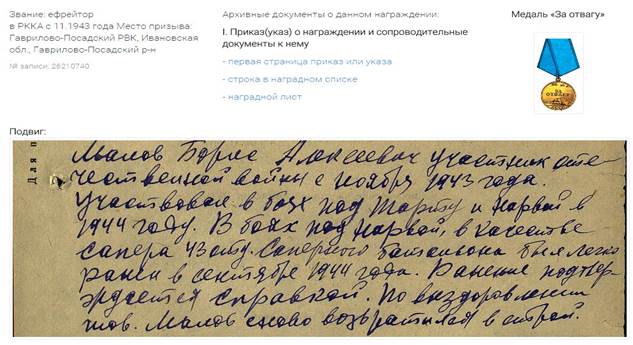 Звание: ефрейтор
в РККА с 11.1943 года Место призыва:
Гаврилово-Посадский РВК, Ивановская
обл., Гаврилово-Посадский р-н
№ записи: 26210740
Архивные документы о данном награждении:
I. Приказ(указ) о награждении и сопроводительные
документы к нему
- первая страница приказ или указа
- строка в наградном списке
- наградной лист
Медаль «За отвагу»
ЗА
ОТВАГУ
Подвиг:
Для п
Малов Борис Алексеевич участник оте-
чественной войны с ноября 1943 года.
Участвовал в боях под Тарту и Нарвой в
1944 году. В боях под Нарвой, в качестве
сапера 43 отд. Саперного батальона был легко
ранен в сентябре 1944 года. Ранение подтвер-
ждается справкой. По выздоровлении
тов. Малов снова возвратился в строй.